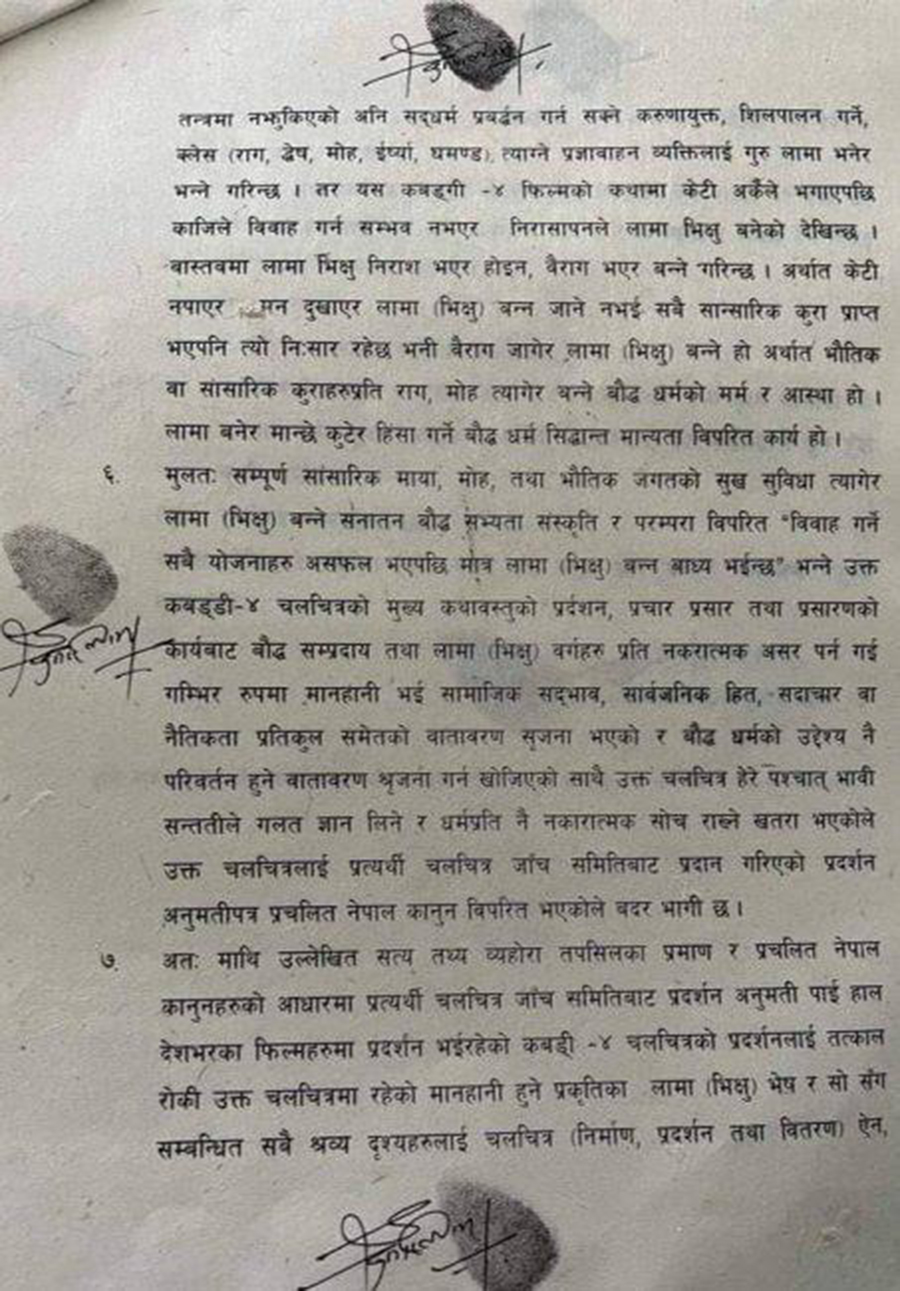 तन्त्रमा नझुकिएको अनि सद्धर्म प्रबर्द्धन गर्न सक्ने करुणायुक्त, शिलपालन गर्ने,
क्लेस (राग, द्वेष, मोह, ईर्ष्या, घमण्ड) त्याग्ने प्रज्ञावाहन व्यक्तिलाई गुरु लामा भनेर
भन्ने गरिन्छ । तर यस कबड्गी -४ फिल्मको कथामा केटी अर्कैले भगाएपछि
काजिले विवाह गर्न सम्भव नभएर निरासापनले लामा भिक्षु बनेको देखिन्छ ।
बास्तवमा लामा भिक्षु निराश भएर होइन, बैराग भएर बन्ने गरिन्छ । अर्थात केटी
नपाएर मन दुखाएर लामा (भिक्षु) बन्न जाने नभई सबै सान्सारिक कुरा प्राप्त
भएपनि त्यो नि:सार रहेछ भनी बैराग जागेर लामा (भिक्षु) बन्ने हो अर्थात भौतिक
वा सांसारिक कुराहरुप्रति राग, मोह त्यागेर बन्ने बौद्ध धर्मको मर्म र आस्था हो ।
लामा बनेर मान्छे कुटेर हिंसा गर्ने बौद्ध धर्म सिद्धान्त मान्यता विपरित कार्य हो ।
६. मुलत: सम्पूर्ण सांसारिक माया, मोह, तथा भौतिक जगतको सुख सुविधा त्यागेर
लामा (भिक्षु) बन्ने सनातन बौद्ध सभ्यता संस्कृति र परम्परा विपरित "विवाह गर्ने
सबै योजनाहरु असफल भएपछि मात्र लामा (भिक्षु) बन्न बाध्य भईन्छ" भन्ने उक्त
कबड्डी-४ चलचित्रको मुख्य कथावस्तुको प्रर्दशन, प्रचार प्रसार तथा प्रसारणको
कार्यबाट बौद्ध सम्प्रदाय तथा लामा (भिक्षु) वर्गहरु प्रति नकरात्मक असर पर्न गई
गम्भिर रुपमा मानहानी भई सामाजिक सद्भाव, सार्वजनिक हित, सदाचार वा
नैतिकता प्रतिकुल समेतको वातावरण सृजना भएको र बौद्ध धर्मको उद्देश्य नै
परिवर्तन हुने वातावरण श्रृजना गर्न खोजिएको साथै उक्त चलचित्र हेरे पश्चात् भावी
सन्ततीले गलत ज्ञान लिने र धर्मप्रति नै नकारात्मक सोच राख्ने खतरा भएकोले
उक्त चलचित्रलाई प्रत्यर्थी चलचित्र जाँच समितिबाट प्रदान गरिएको प्रदर्शन
अनुमतीपत्र प्रचलित नेपाल कानुन विपरित भएकोले बदर भागी छ ।
७. अत: माथि उल्लेखित सत्य तथ्य व्यहोरा तपसिलका प्रमाण र प्रचलित नेपाल
कानुनहरुको आधारमा प्रत्यर्थी चलचित्र जाँच समितिबाट प्रदर्शन अनुमती पाई हाल
देशभरका फिल्महरुमा प्रदर्शन भईरहेको कबड्डी -४ चलचित्रको प्रदर्शनलाई तत्काल
रोकी उक्त चलचित्रमा रहेको मानहानी हुने प्रकृतिका लामा (भिक्षु) भेष र सो सँग
सम्बन्धित सबै श्रव्य दृश्यहरुलाई चलचित्र (निर्माण, प्रदर्शन तथा वितरण) ऐन,